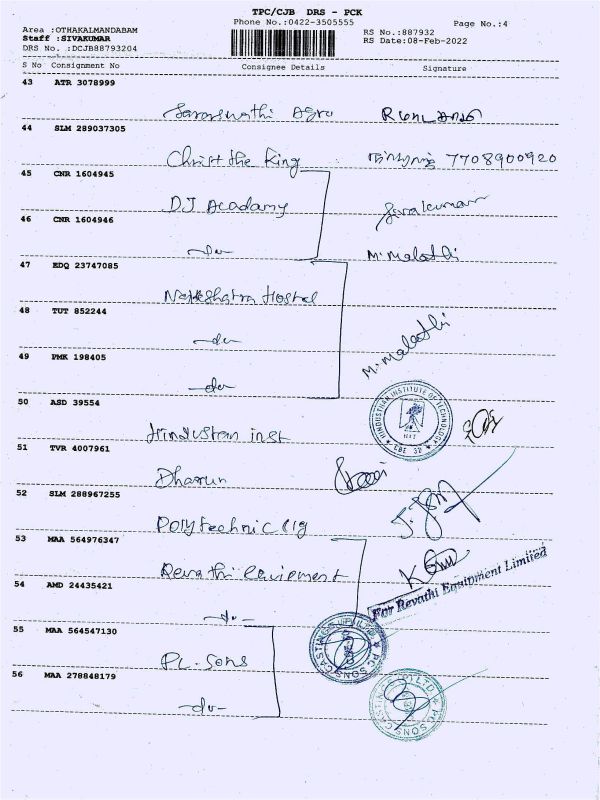 TPC/CJB DRS - PCK
Phone No.:0422-3505555
Page No.:4
Area :OTHAKALMANDABAM
Staff :SIVAKUMAR
DRS No. :DCJB88793204
RS No.:887932
RS Date:08-Feb-2022
S No Consignment No Consignee Details Signature
43 ATR 3078999
Saraswathi Agro
44 SLM 289037305
Christ the King 7708900920
45 CNR 1604945
DJ Acadamy Sivakumar
46 CNR 1604946
-do- M. Malathi
47 EDQ 23747085
Nakshatra Hostel
48 TUT 852244
-do- M. Malathi
49 PMK 198405
-do-
50 ASD 39554
HINDUSTHAN INSTITUTE OF TECHNOLOGY
HIT
CBE 32
Hindustan inst
51 TVR 4007961
Dharun
52 SLM 288967255
Polytechnic clg
53 MAA 564976347
Revathi
For Revathi Equipment Limited
54 AMD 24435421
-do-
55 MAA 564547130
PC. Sons
56 MAA 278848179
-do-